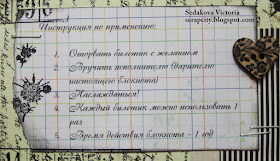 Sedakova Victoria
scrapcity.blogspot.com
Инструкция по применению:
1. Оторвать билетик с желанием
2. Вручить исполнителю (дарителю
настоящего блокнота)
3. Наслаждаться!
4. Каждый билетик можно использовать 1
раз
5. Время действия блокнота – 1 год